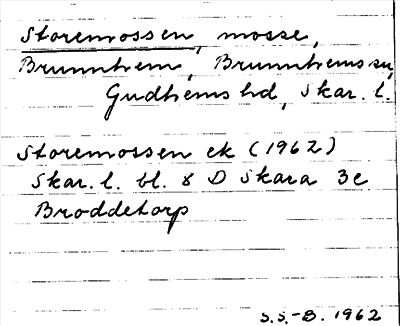 Storemossen, mosse,
Brunnhem, Brunnhems sn,
Gudhems hd, Skar. l.
Storemossen ek (1962)
Skar. l. bl. 8 D Skara 3c
Broddetorp
S.S.-B. 1962